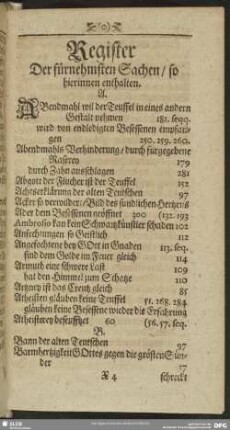 Register
Der fürnehmsten Sachen / so
hierinnen enthalten.
A.
ABendmahl wil der Teuffel in eines andern
Gestalt nehmen 181. seqq.
wird von endledigten Besessenen empfan-
gen 250. 259. 260.
Abendmahls Verhinderung / durch fürgegebene
Raserey 179
durch Zahn ausschlagen 281
Abgott der Flücher ist der Teuffel 152
Achtserklärung der alten Teutschen 97
Acker so verwildert / Bild des sündlichen Hertzens
Ader dem Besessenen geöffnet 200 (132. 193
Ambrosio kan kein Schwartzkünstler schaden 102
Anfechtungen sc Geistlich 112
Angefochtene bey GOtt in Gnaden 113. seq.
sind dem Golde im Feuer gleich 114
Armuth eine schwere Last 109
hat den Himmel zum Schatze 110
Artzney ist das Creutz gleich 85
Atheisten gläuben keine Teuffel 51. 168. 284
gläuben keine Besessene wieder die Erfahrung
Atheisterey beseufftzet 60 (56. 57. seq.
B.
Bann der alten Teutschen 97
Barmhertzigkeit GOttes gegen die grösten Sün-
der 17
X 4 schreckt
SLUB
DFG